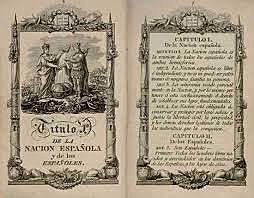 Titulo Iº
DE LA
NACION ESPAÑOLA
y de los
ESPAÑOLES.
CAPITULO I.
De la Nacion española.
ARTICULO 1. La Nacion española es
la reunion de todos los españoles de
ambos hemisferios.
ART. 2. La Nacion española es libre
é independiente, y no es ni puede ser patri-
monio de ninguna familia ni persona.
ART. 3. La soberanía reside esencial-
mente en la Nacion, y por lo mismo per-
tenece á esta exclusivamente el derecho
de establecer sus leyes fundamentales.
ART. 4. La Nacion está obligada á
conservar y proteger por leyes sabias y
justas la libertad civil, la propiedad
y los demas derechos legítimos de todos
los individuos que la componen.
CAPITULO II.
De los Españoles.
ART. 5. Son Españoles:
Primero: Todos los hombres libres na-
cidos y avecindados en los dominios
de las Españas, y los hijos de estos.